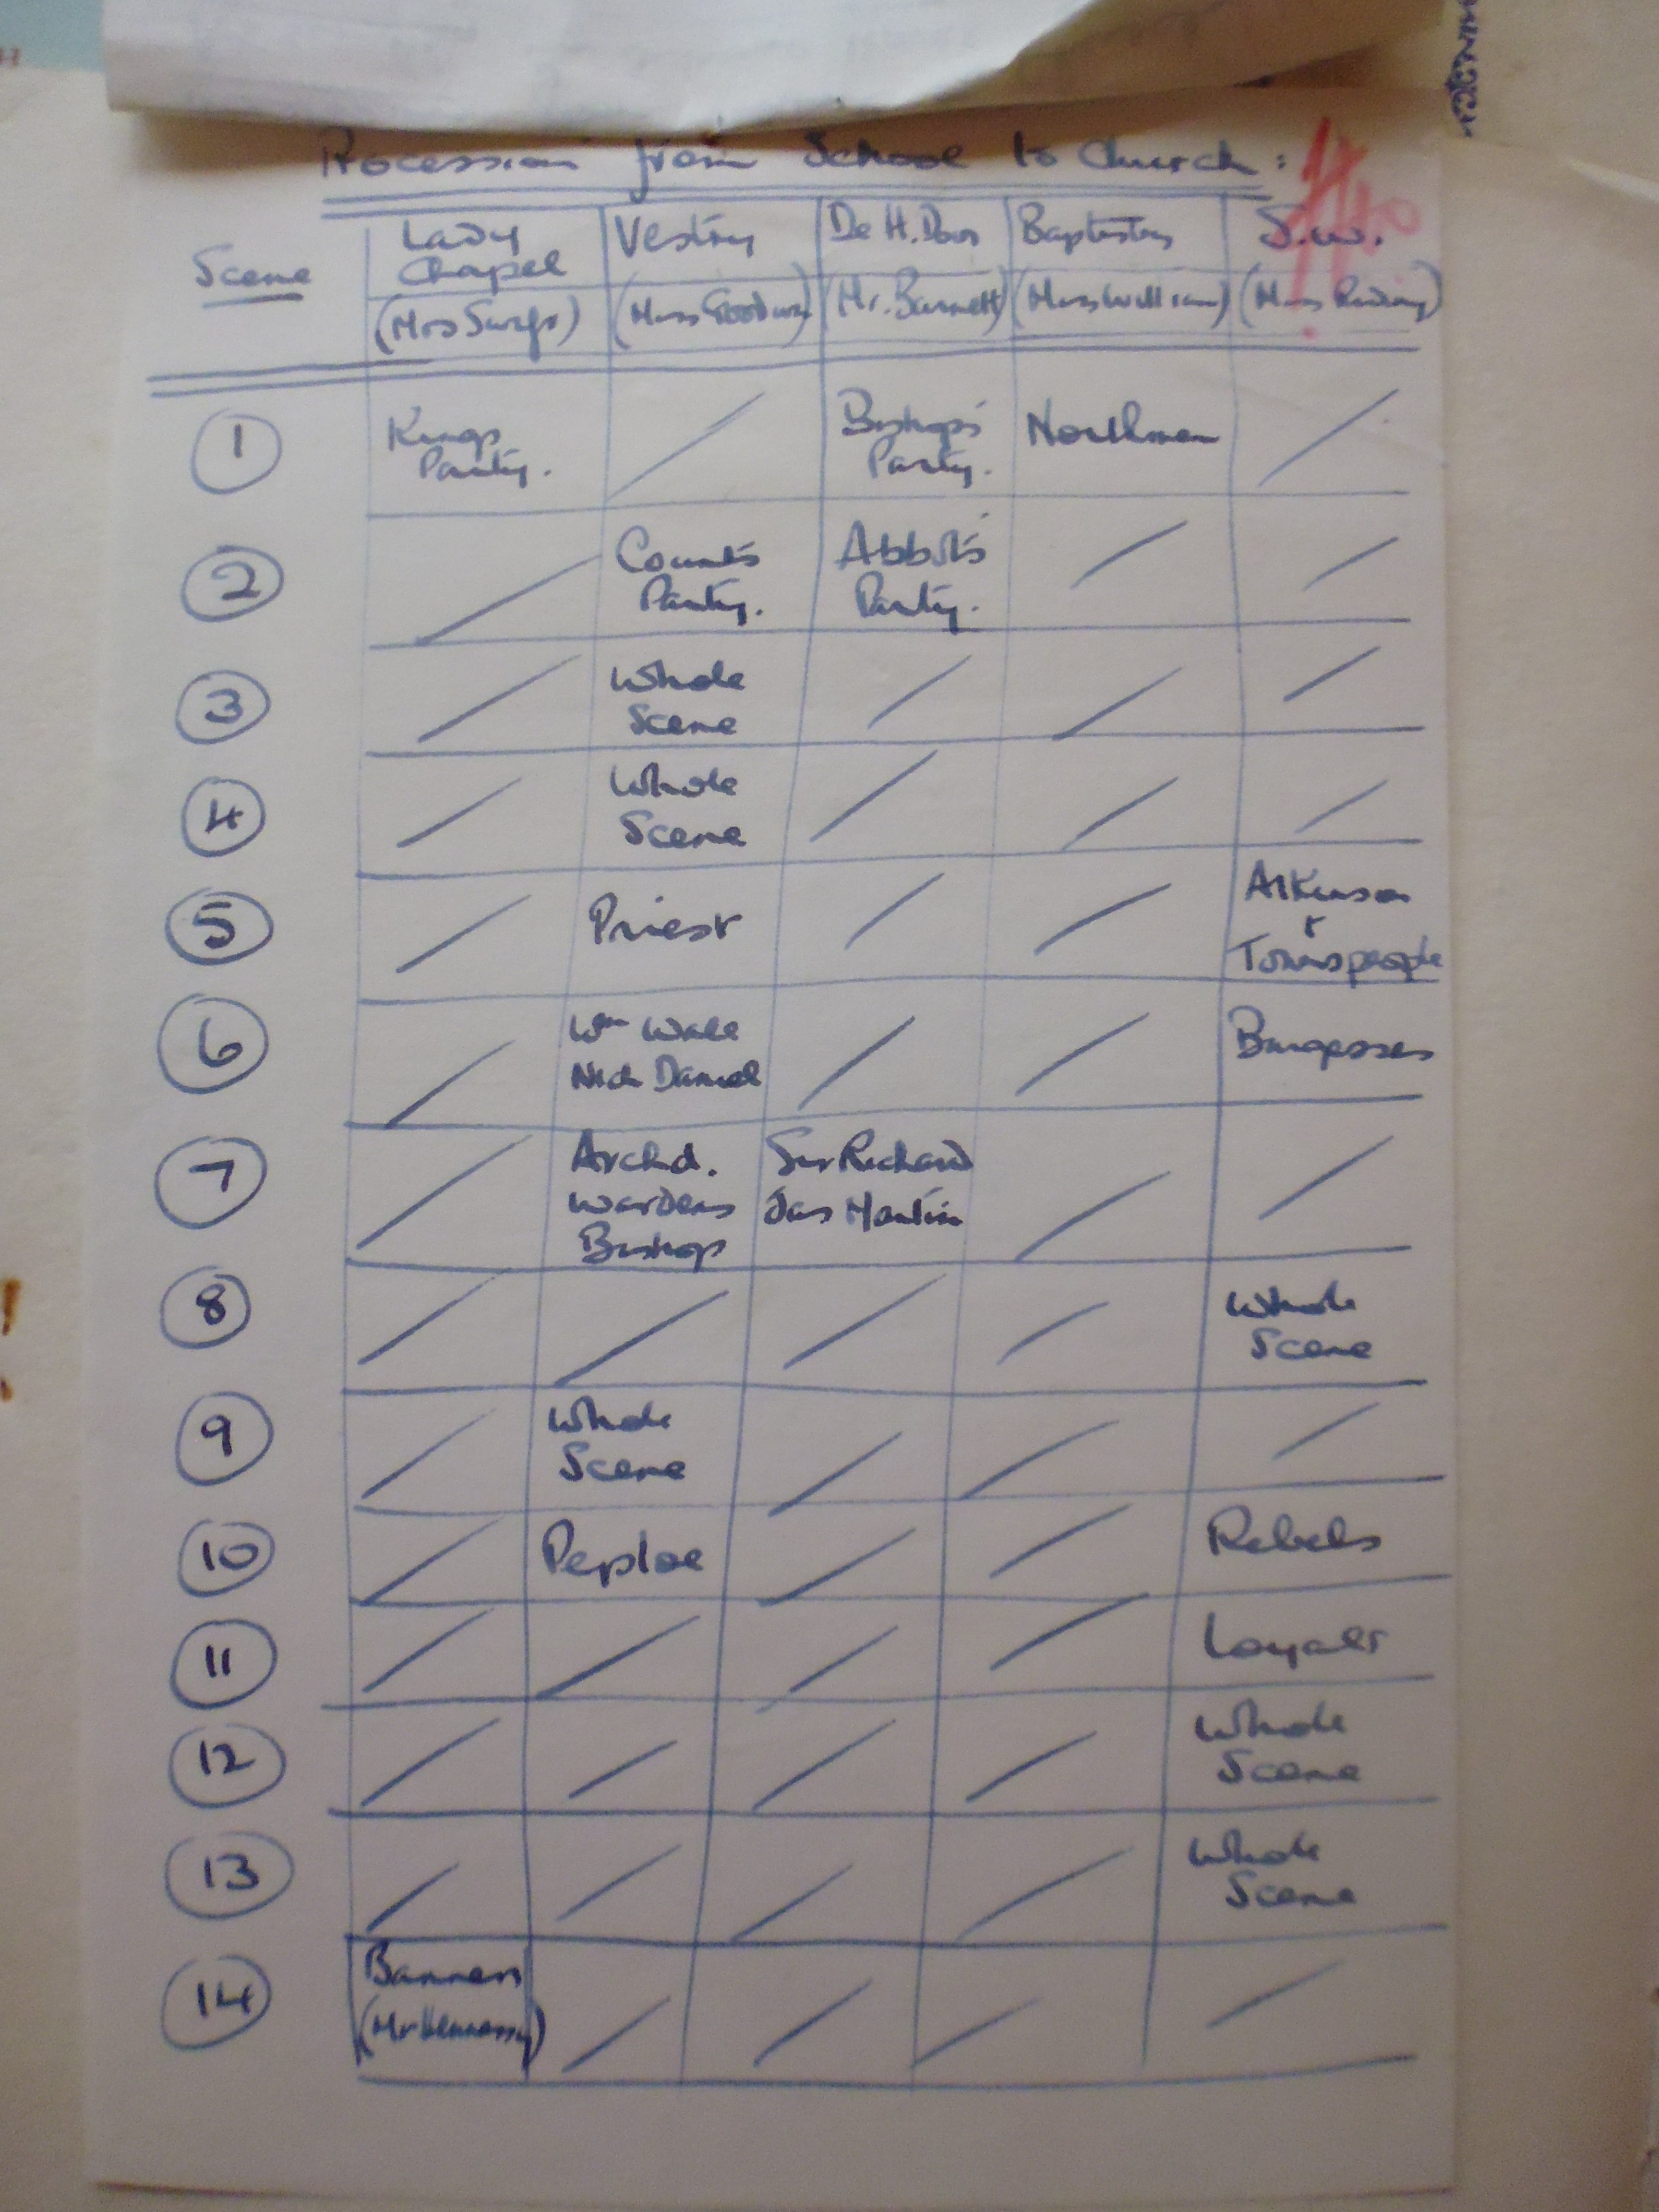 Procession from School to Church:
Scene
Lady Chapel
Vestry
De H. Door
Baptistry
S.W.
(Mr. Barnett)
(Miss William)
1
Kings Party.
Bishop's Party.
Northmen
2
Count's Party.
Abbot's Party.
3
Whole Scene
4
Whole Scene
5
Priest
Atkinson + Townspeople
6
Wm Wall
Nich Daniel
Burgesses
7
Archd.
Wardens
Bishop
Sir Richard
Jas Martin
8
Whole Scene
9
Whole Scene
10
Peploe
Rebels
11
Loyalist
12
Whole Scene
13
Whole Scene
14
Banners
(Mr Hennessy)